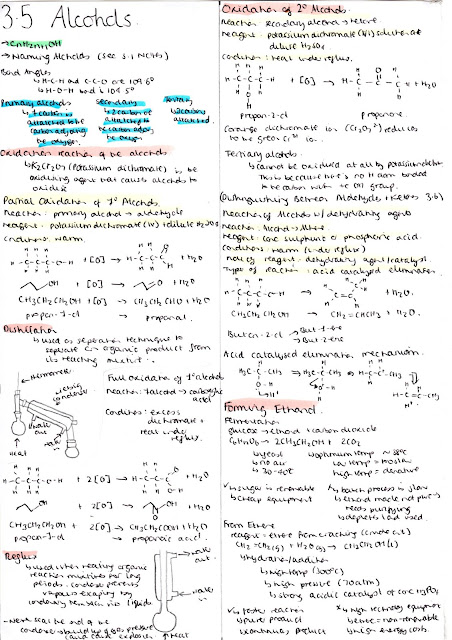 3.5 Alcohols
→ CnH2n+1OH
→ Naming Alcohols (see 3.1 Notes)
Bond Angles
↳ H-C-H and C-C-O are 109.5°
↳ H-O-H bond is 104.5°
Primary alcohols
↳ 1 carbon is attached to the carbon adjoining the oxygen.
secondary
↳ 2 carbon are attached to the carbon adjoin the oxygen
tertiary
↳ 3 carbon attached.
Oxidation reaction of the alcohols
↳ K2Cr2O7 (potassium dichromate) is the
oxidising agent that causes alcohols to
oxidise
Partial Oxidation of 1° Alcohols.
Reaction: primary alcohol → aldehyde
reagent: potassium dichromate (VI) + dilute H2SO4
conditions: warm
+ [O] → + H2O
+ [O] → + H2O
CH3CH2CH2OH + [O] → CH3CH2CHO + H2O
propan-1-ol → propanal
Distillation
↳ used as separation technique to
separate an organic product from
its reacting mixture.
thermometer
condenser
water out
water in
heat
Full Oxidation of 1° alcohol
Reaction: 1° alcohol → carboxylic
acid
Conditions: excess
dichromate +
heat under
reflux.
+ 2[O] → + H2O
+ 2[O] → + H2O
CH3CH2CH2OH + 2[O] → CH3CH2COOH + H2O
propan-1-ol → propanoic acid.
Reflux
↳ used when heating organic
reaction mixtures for long
periods. condenser prevents
vapours escaping by
condensing them back into liquids
→ Never seal the end of the
condenser - build up of gas pressure
could cause explosion
water out.
water in
heat
Oxidation of 2° Alcohols.
Reaction: secondary alcohol → ketone.
reagent: potassium dichromate (VI) solution and
dilute H2SO4
conditions: heat under reflux.
+ [O] → + H2O
propan-2-ol propanone
(orange dichromate ion (Cr2O7²⁻) reduces
to the green Cr³⁺ ion.
Tertiary alcohols.
↳ cannot be oxidised at all by potassium dichromate
This is because there is no H atom bonded
to the carbon with the OH group.
(Distinguishing between Aldehydes + Ketones 3.6)
Reaction of Alcohols w/ dehydrating agents
reaction: Alcohol → Alkene.
reagent: conc sulphuric or phosphoric acid.
conditions: warm (under reflux)
role of reagent: dehydrating agent/catalyst.
type of reaction: acid catalysed elimination.
→ + H2O.
CH3CH2CH2OH → CH2=CHCH3 + H2O.
Butan-2-ol → But-1-ene
→ But-2-ene
Acid catalysed elimination mechanism.
Forming Ethanol
Fermentation
glucose → ethanol + carbon dioxide
C6H12O6 → 2CH3CH2OH + 2CO2
↳ yeast
↳ no air
↳ 30-40°C
↳ optimum temp ~ 38°C
low temp = too slow
high temp = denature
✓ ↳ sugar is renewable
↳ cheap equipment
x ↳ batch process is slow
↳ ethanol made not pure →
needs purifying
↳ depletes land used.
From Ethene
reagent = ethene from cracking (crude oil)
CH2=CH2(g) + H2O(g) → CH3CH2OH(l)
↳ hydration/addition
↳ high temp (300°C)
↳ high pressure (70atm)
↳ strong acidic catalyst of conc H3PO4
✓ ↳ faster reaction
↳ purer product
↳ continuous product
x ↳ high technology equipment
↳ ethene = non-renewable
↳ high energy costs